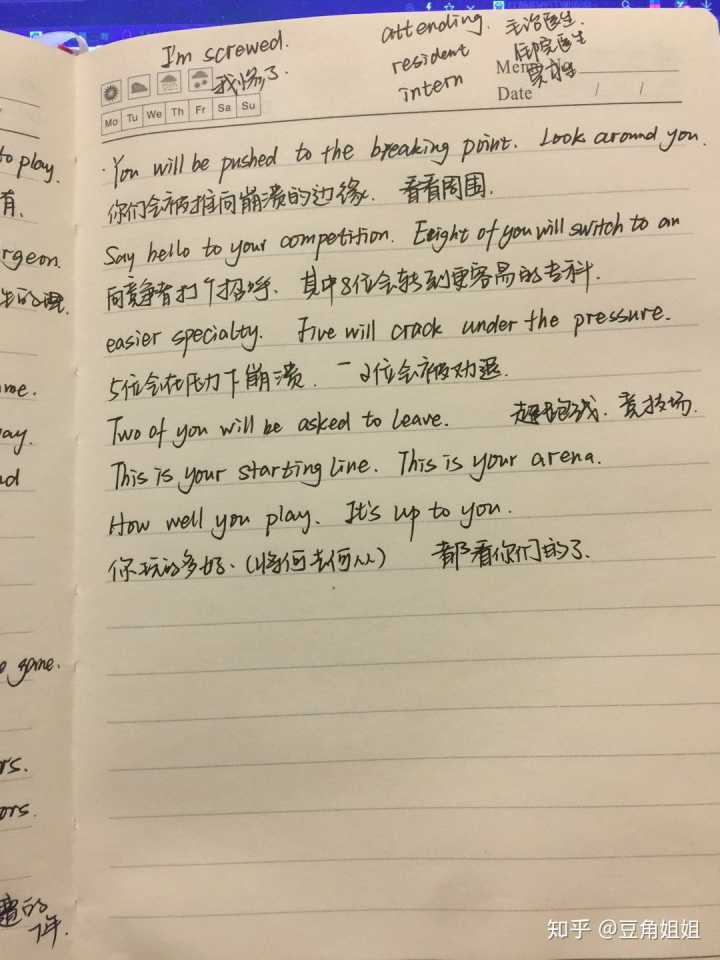 I'm screwed.
我惨了.
attending. 主治医生.
resident 住院医生
intern 实习生
Mem
Date / /
Mo Tu We Th Fr Sa Su
·You will be pushed to the breaking point. Look around you.
你们会被推向崩溃的边缘. 看看周围.
Say hello to your competition. Eight of you will switch to an
向竞争者打个招呼. 其中8位会转到更容易的专科.
easier specialty. Five will crack under the pressure.
5位会在压力下崩溃. 2位会被劝退.
Two of you will be asked to leave. 起跑线. 竞技场.
This is your starting line. This is your arena.
How well you play. It's up to you.
你玩的多好. (将何去何从) 都看你们的了.
to play.
有.
rgeon.
me.
ay.
nd
game.
rs.
ors.
的
年.
知乎 @豆角姐姐